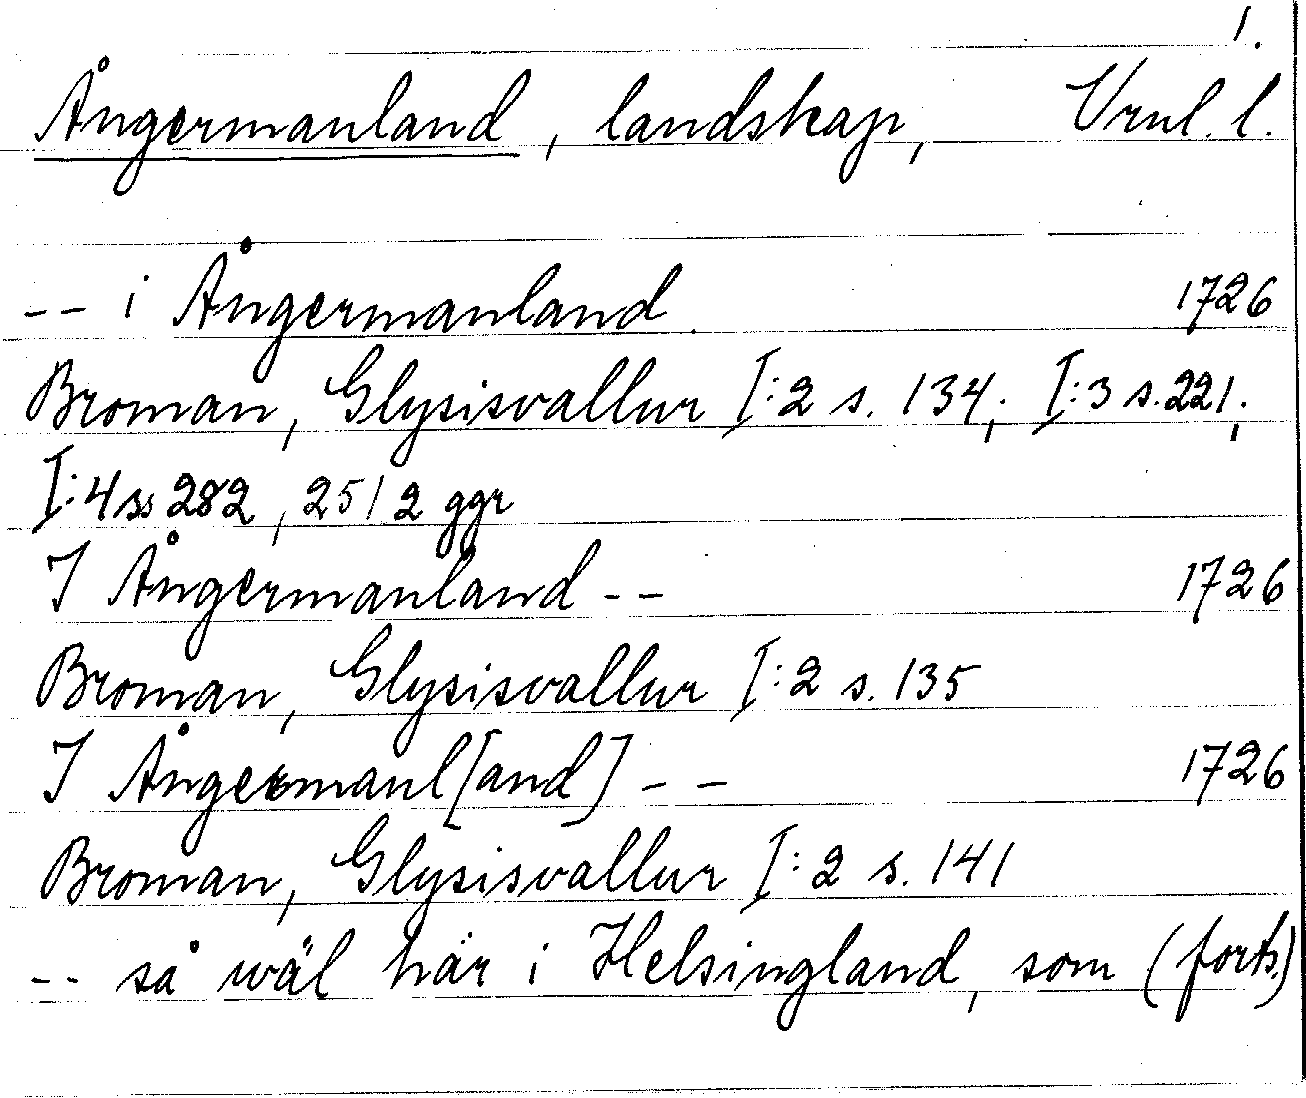 1.
Ångermanland, landskap, Vrnl. l.
-- i Ångermanland. 1726
Broman, Glysisvallur I:2 s. 134; I:3 s. 221;
I:4 ss 282, 251 2 ggr
I Ångermanland -- 1726
Broman, Glysisvallur I:2 s. 135
I Ångermanl[and] -- 1726
Broman, Glysisvallur I:2 s. 141
-- så wäl här i Helsingland, som (forts.)